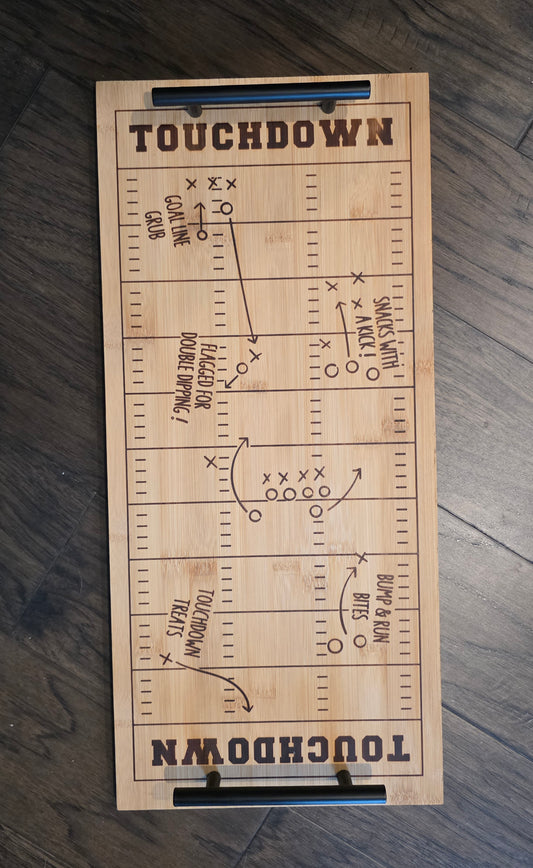 TOUCHDOWN
GOAL LINE
GRUB
SNACKS WITH
A KICK!
FLAGGED FOR
DOUBLE DIPPING!
BUMP & RUN
BITES
TOUCHDOWN
TREATS
TOUCHDOWN